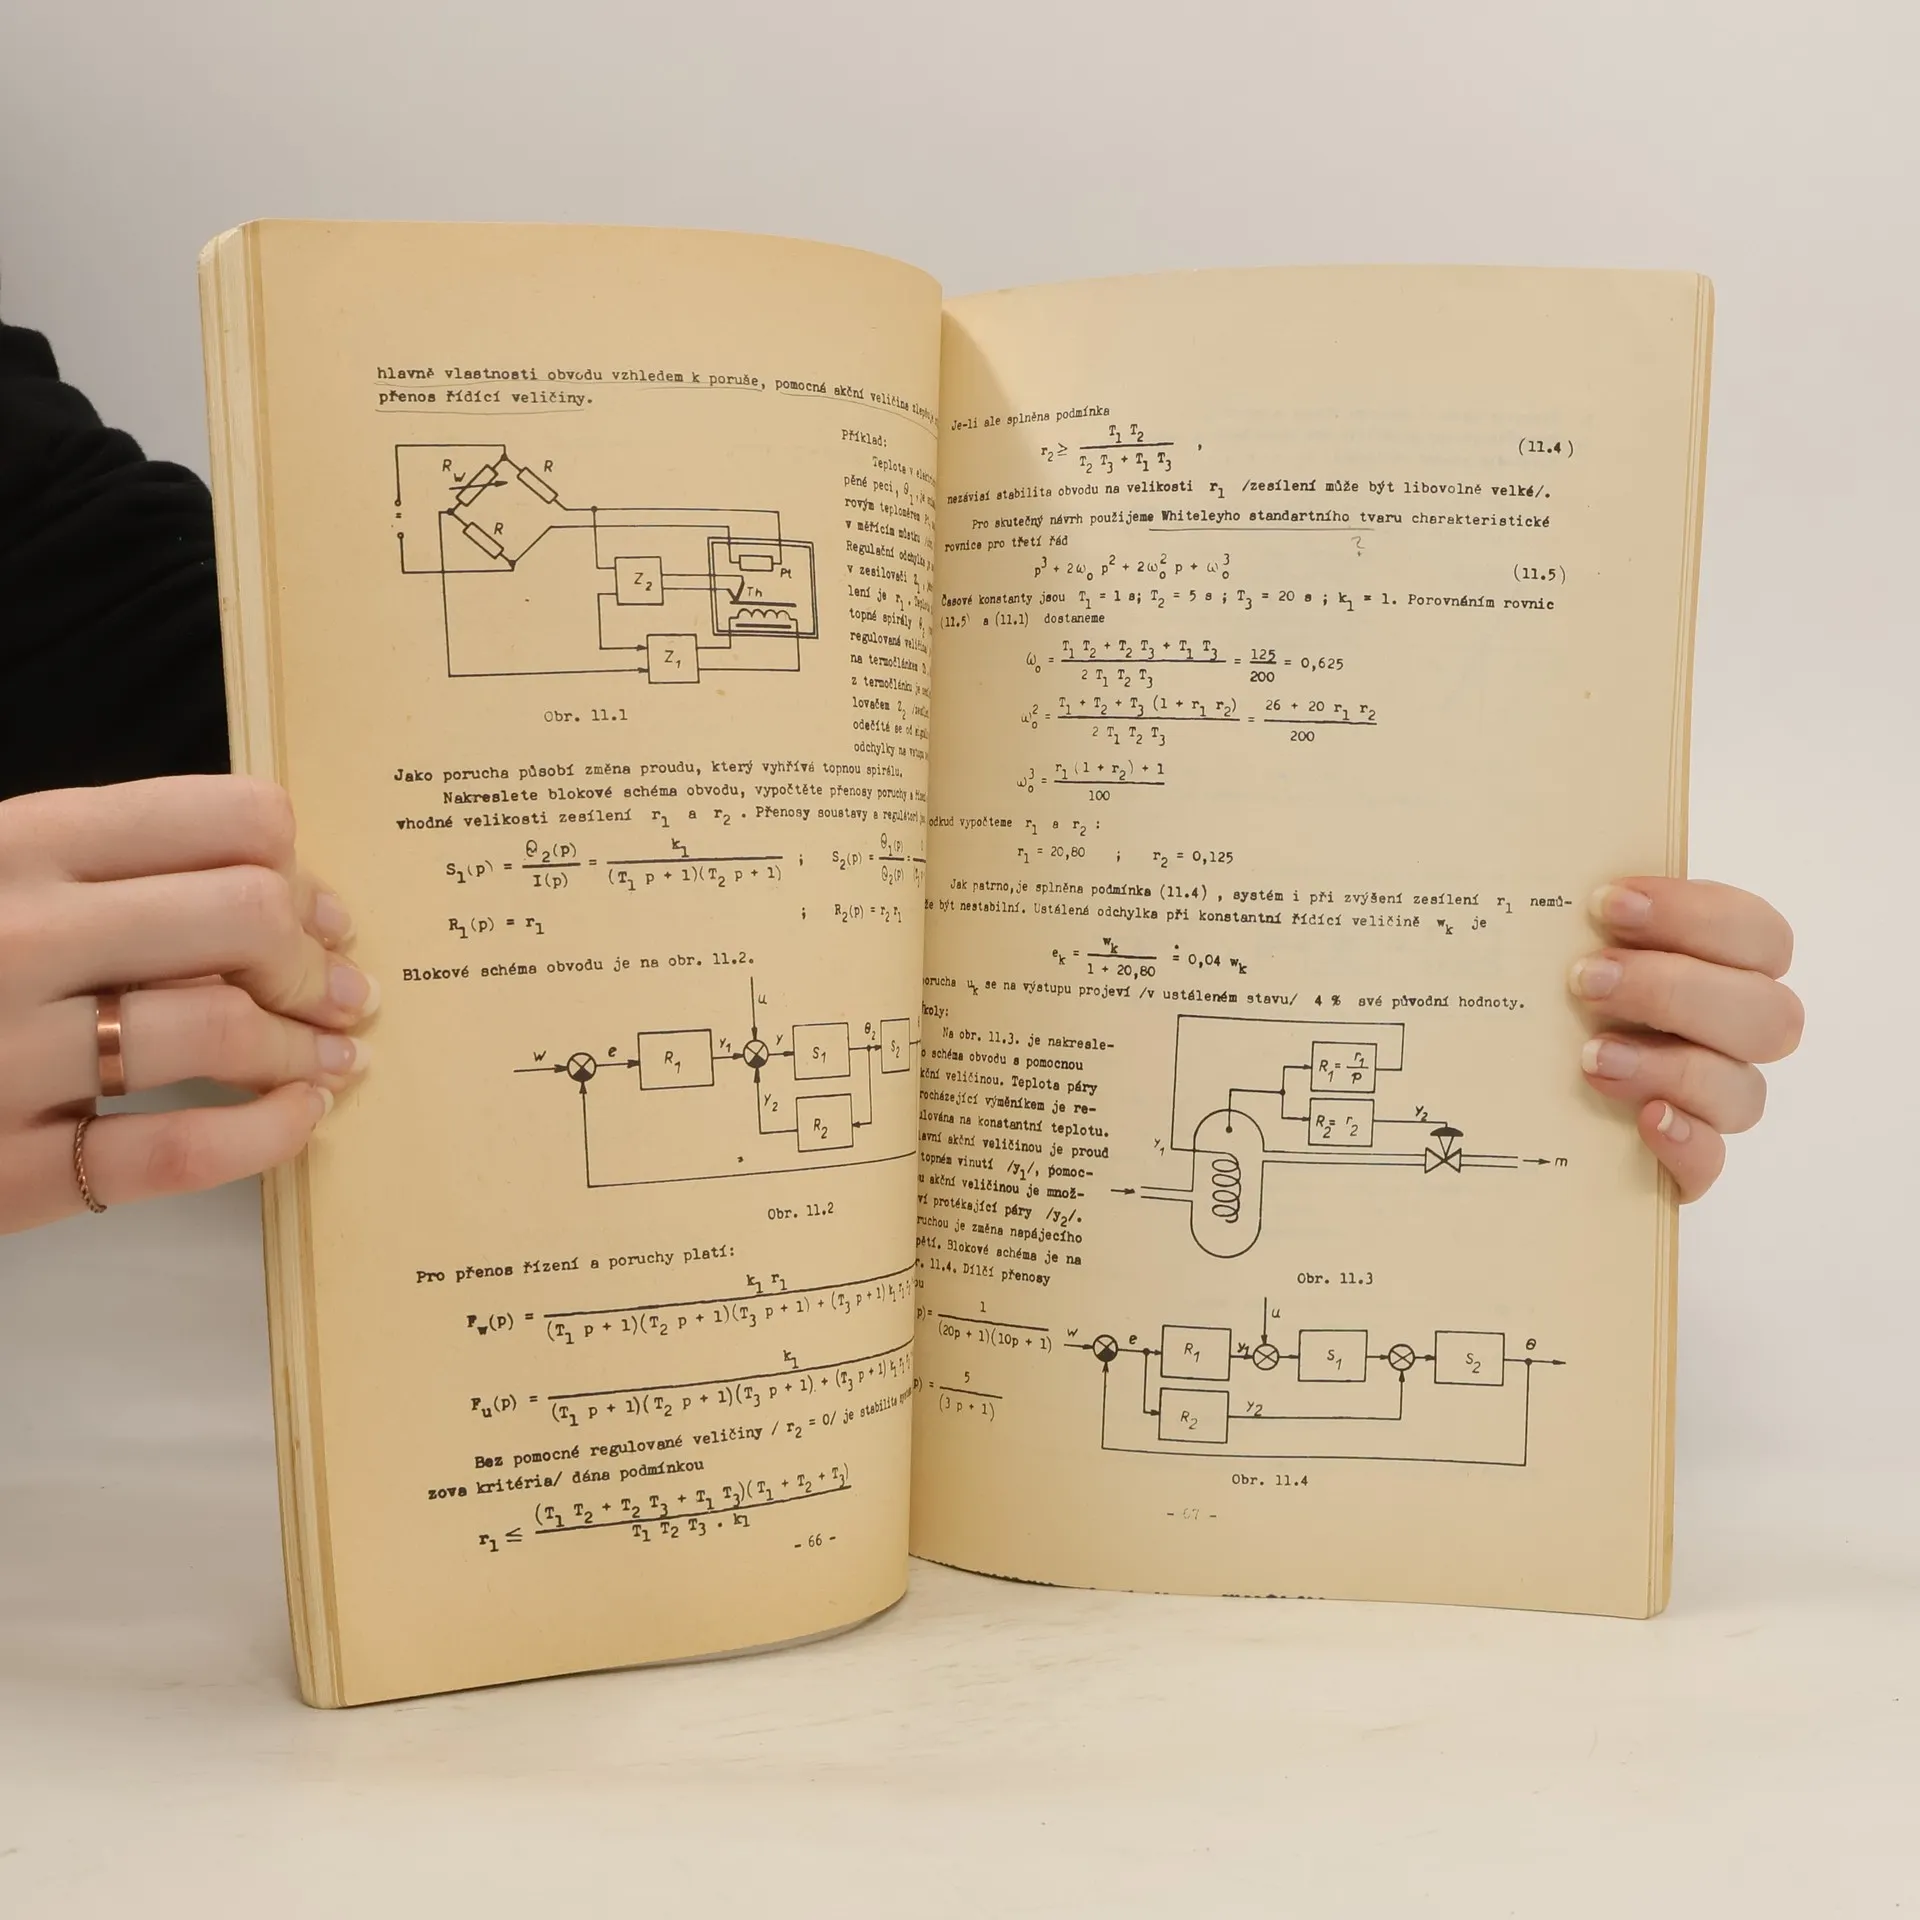 hlavně vlastnosti obvodu vzhledem k poruše, pomocná akční veličina
přenos řídící veličiny.
R_w
R
R
Z_2
Z_1
Pt
Th
Obr. 11.1
Příklad:
Teplota v
pěné peci, θ_1, je
rovým teploměrem
v měřícím můstku
Regulační odchylka
v zesilovači Z_1,
lení je r_1.
topné spirály
regulované
na termočlánkem
z termočlánku je
lovačem Z_2
odečítá se od
odchylky na
Jako porucha působí změna proudu, který vyhřívá topnou spirálu.
Nakreslete blokové schéma obvodu, vypočtěte přenosy poruchy a
vhodné velikosti zesílení r_1 a r_2. Přenosy soustavy a regulátorů
S_1(p) = Θ_2(p) / I(p) = k_1 / (T_1 p + 1)(T_2 p + 1) ; S_2(p) = Θ_1(p) / Θ_2(p) =
R_1(p) = r_1 ; R_2(p) = r_2 r_1
Blokové schéma obvodu je na obr. 11.2.
w e R_1 y_1 u y S_1 θ_2 S_2
y_2 R_2
Obr. 11.2
Pro přenos řízení a poruchy platí:
F_w(p) = k_1 r_1 / (T_1 p + 1)(T_2 p + 1)(T_3 p + 1) + (T_3 p + 1) k_1 r_1
F_u(p) = k_1 / (T_1 p + 1)(T_2 p + 1)(T_3 p + 1) + (T_3 p + 1) k_1 r_1
Bez pomocné regulované veličiny / r_2 = 0/ je stabilita
zova kritéria/ dána podmínkou
r_1 ≤ (T_1 T_2 + T_2 T_3 + T_1 T_3)(T_1 + T_2 + T_3) / T_1 T_2 T_3 . k_1
- 66 -
Je-li ale splněna podmínka
r_2 ≥ T_1 T_2 / T_2 T_3 + T_1 T_3 , (11.4)
nezávisí stabilita obvodu na velikosti r_1 /zesílení může být libovolně velké/.
Pro skutečný návrh použijeme Whiteleyho standartního tvaru charakteristické
?
rovnice pro třetí řád
p^3 + 2ω_0 p^2 + 2ω_0^2 p + ω_0^3 (11.5)
Časové konstanty jsou T_1 = 1 s; T_2 = 5 s ; T_3 = 20 s ; k_1 = 1. Porovnáním rovnic
(11.5) a (11.1) dostaneme
ω_0 = T_1 T_2 + T_2 T_3 + T_1 T_3 / 2 T_1 T_2 T_3 = 125 / 200 = 0,625
ω_0^2 = T_1 + T_2 + T_3 (1 + r_1 r_2) / 2 T_1 T_2 T_3 = 26 + 20 r_1 r_2 / 200
ω_0^3 = r_1 (1 + r_2) + 1 / 100
odkud vypočteme r_1 a r_2 :
r_1 = 20,80 ; r_2 = 0,125
Jak patrno, je splněna podmínka (11.4) , systém i při zvýšení zesílení r_1 nemů-
že být nestabilní. Ustálená odchylka při konstantní řídící veličině w_k je
e_k = w_k / 1 + 20,80 ≐ 0,04 w_k
porucha u_k se na výstupu projeví /v ustáleném stavu/ 4 % své původní hodnoty.
koly:
Na obr. 11.3. je nakresle-
o schéma obvodu s pomocnou
kční veličinou. Teplota páry
rocházející výměníkem je re-
ulována na konstantní teplotu.
lavní akční veličinou je proud
topném vinutí /y_1/, pomoc-
u akční veličinou je množ-
ví protékající páry /y_2/.
ruchou je změna napájecího
pětí. Blokové schéma je na
r. 11.4. Dílčí přenosy
ou
R_1 = r_1 / p
R_2 = r_2
y_2
y_1
m
Obr. 11.3
p) = 1 / (20p + 1)(10p + 1)
p) = 5 / (3 p + 1)
w e R_1 y_1 u S_1 S_2 θ
R_2 y_2
Obr. 11.4
- 67 -